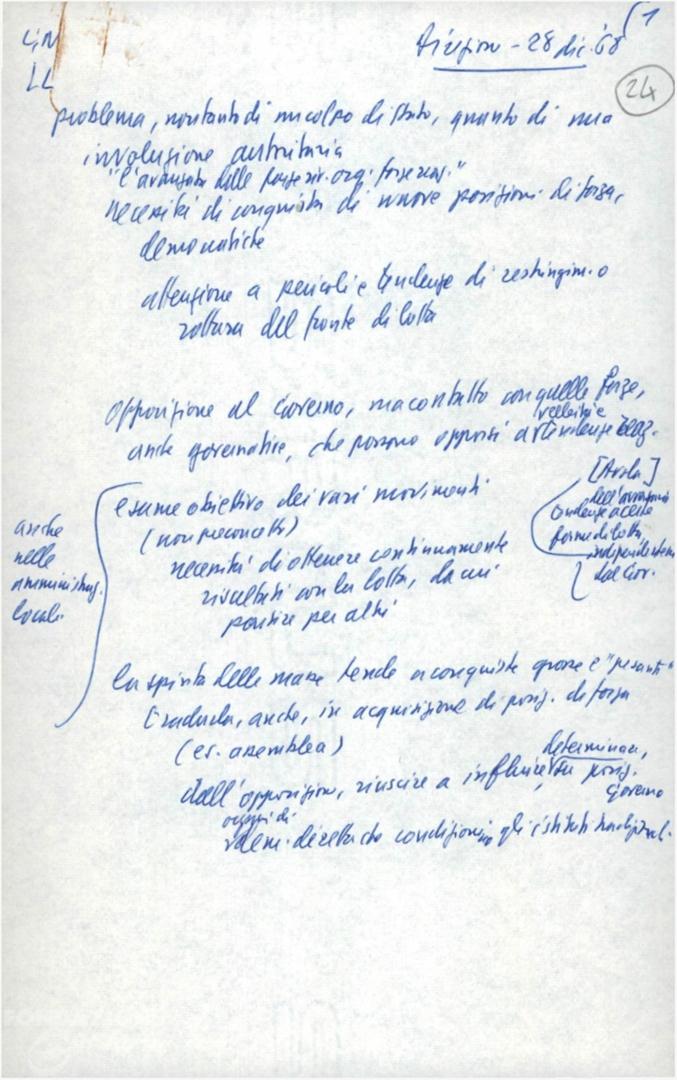 Direzione - 28 dic. '68
1
24
problema, non tanto di un colpo di Stato, quanto di una
involuzione autoritaria
"l'avanzata delle forze
necessità di conquista di nuove posizioni di forza,
democratiche
attenzione a pericoli e tendenze di restringim. o
rottura del fronte di lotta
opposizione al Governo, ma contatto con quelle forze,
anche governative, che possono opporsi a velleità e tendenze reaz.
esame obiettivo dei vari movimenti
(non preconcetti)
necessità di ottenere continuamente
risultati con la lotta, da cui
partire per altri
anche
nelle
amministraz.
locali
[Avola]
dell'avversario
tendenze a certe
forme di lotta
indipendentem.
dal Gov.
la spinta delle masse tende a conquiste grosse e "pesanti"
tradurla, anche, in acquisizione di posiz. di forza
(es. assemblea)
dall'opposizione, riuscire a influire, determinare, su posiz.
Governo
organi di
dem. diretta che condizionino gli istituti tradizional.